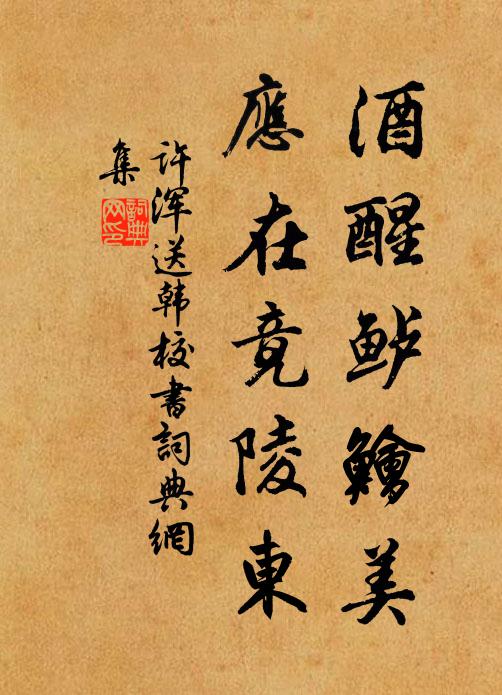 酒醒鲈鱠美
應在竟陵東
许浑送韩校書詞典網
集
詞典网印